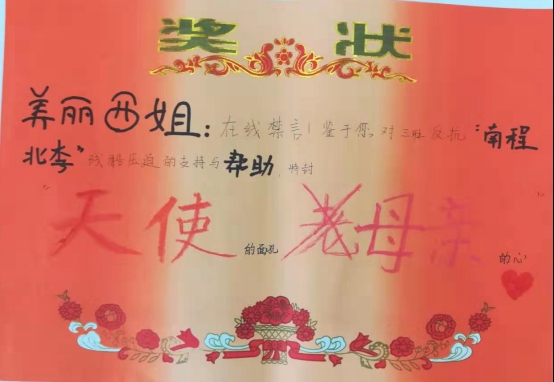 奖 状
养丽西姐：在线禁言！鉴于您对三班反抗“南程
北李”残酷压迫的支持与帮助，特封
“天使的面孔 老母亲的心